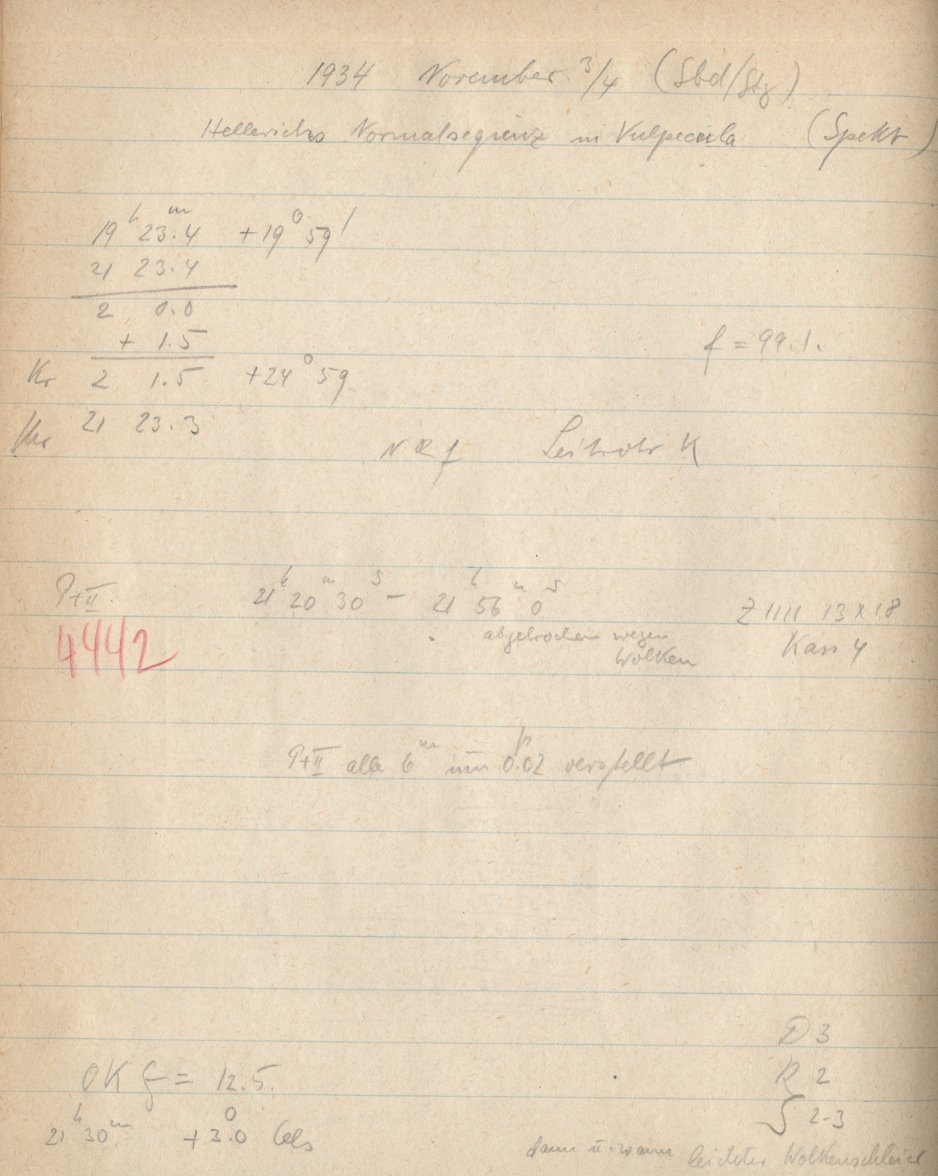 1934 November 3/4 (Sbd/Stg)
Hellerichs Normalsequenz in Vulpecula (Spekt)
19h 23m.4 +19° 59'
21 23.4
2 0.0
+ 1.5
f = 99.1.
Kr 2 1.5 +24° 59
Uhr 21 23.3
N R f Leitrohr K
P+II 21h 20m 30s – 21h 56m 0s
Z 1111 13x18
abgebrochen wegen
Wolken
Kass 4
4442
P+II alle 6m um 0.02 verstellt
D 3
OK f = 12.5
R 2
S 2-3
21h 30m +3.0° Cels
dann u. wann leichter Wolkenschleier